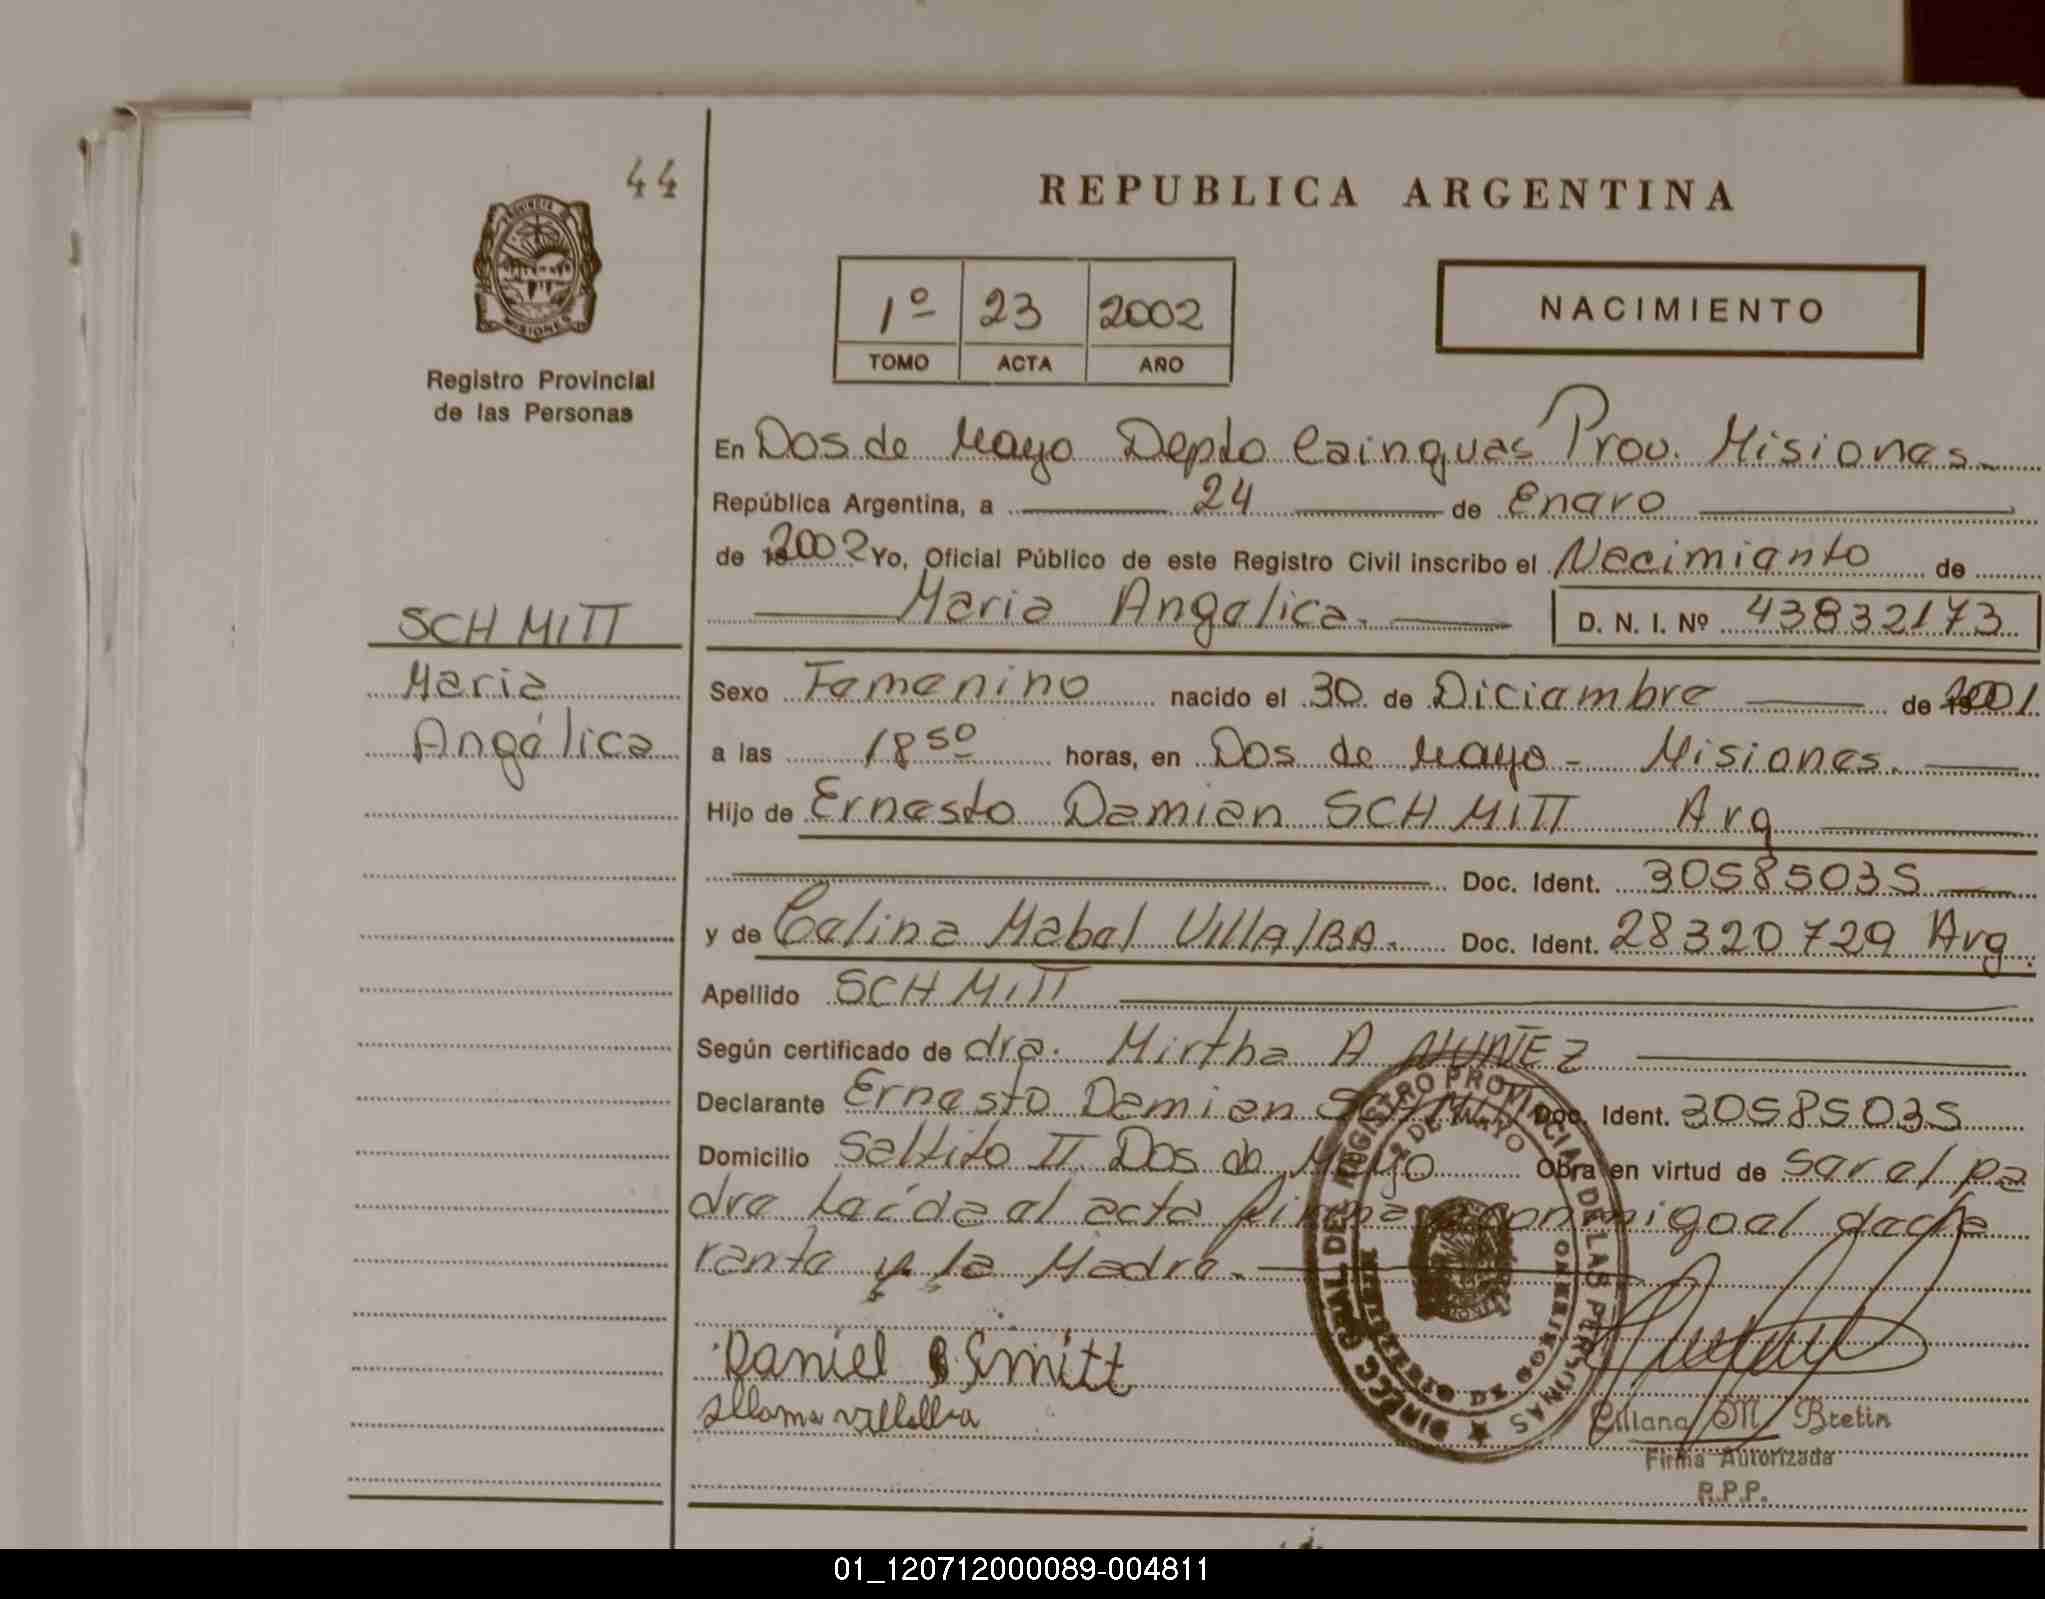 44
REPUBLICA ARGENTINA
PROVINCIA DE
MISIONES
Registro Provincial
de las Personas
1º 23 2002
TOMO ACTA AÑO
NACIMIENTO
En Dos de Mayo Depto Cainguas Prov. Misiones
República Argentina, a 24 de Enero
de 2002 Yo, Oficial Público de este Registro Civil inscribo el Nacimiento de
Maria Angelica. D. N. I. Nº 43832173
SCHMITT
Maria
Angélica
Sexo Femenino nacido el 30 de Diciembre de 2001
a las 18 50 horas, en Dos de Mayo - Misiones.
Hijo de Ernesto Damian SCHMITT Arg
Doc. Ident. 30585035
y de Celina Mabel VillAlBA. Doc. Ident. 28320729 Arg.
Apellido SCHMITT
Según certificado de dra. Mirtha A NUÑEZ
Declarante Ernesto Damian SCHMITT Doc. Ident. 30585035
Domicilio Saltito II Dos de Mayo Obra en virtud de ser el pa
dre Leída el acta firman conmigo el decla
rante y la Madre.
DIRECC. GRAL. DEL REGISTRO PROVINCIAL DE LAS PERSONAS
2 DE MAYO
Daniel Smitt
villalba
Liliana M. Bretin
Firma Autorizada
R.P.P.
01_120712000089-004811